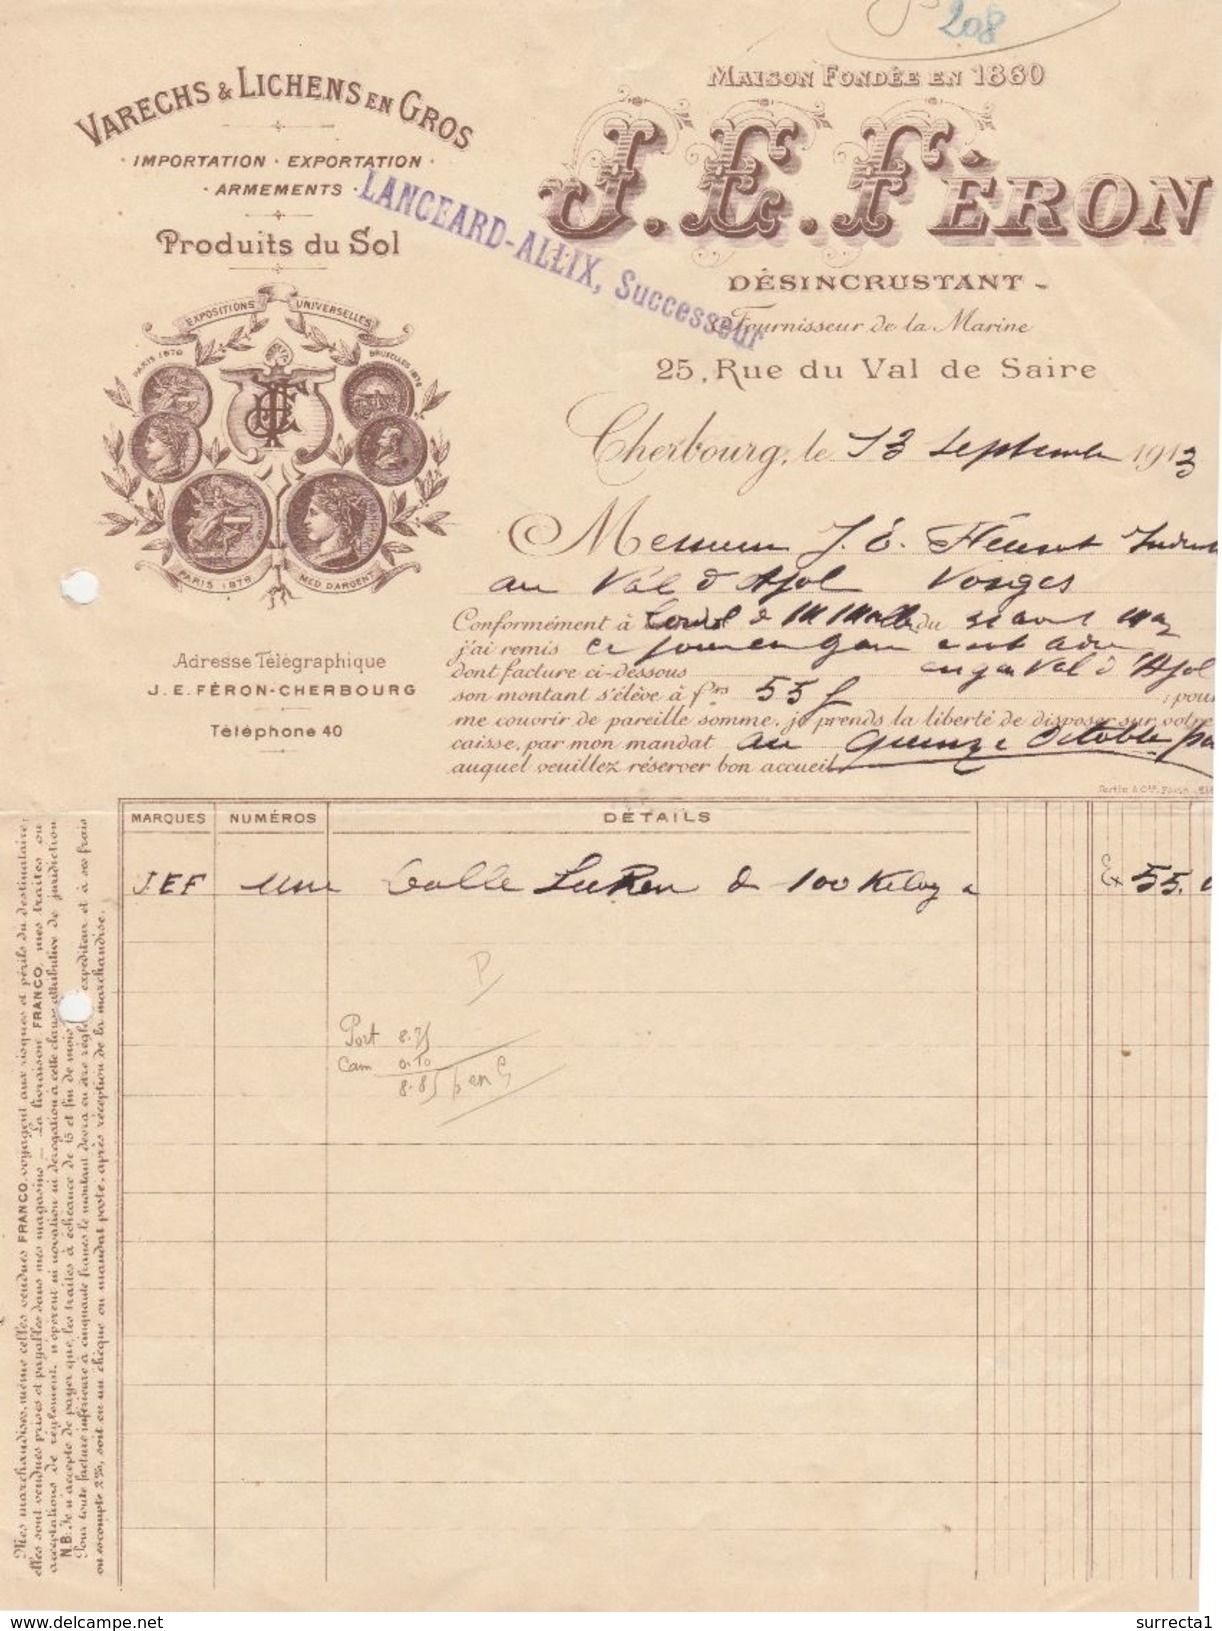 208
VARECHS & LICHENS EN GROS
· IMPORTATION · EXPORTATION ·
· ARMEMENTS ·
Produits du Sol
LANCEARD-ALLIX, Successeur
MAISON FONDÉE EN 1860
J.E.FÉRON
DÉSINCRUSTANT
Fournisseur de la Marine
25, Rue du Val de Saire
EXPOSITIONS UNIVERSELLES
PARIS 1878
BRUXELLES 1876
PARIS 1878
MED. D'ARGENT
Cherbourg, le 13 Septembre 1913
Messieurs J. E.
au Val d'Ajol Vosges
Conformément à du
j'ai remis ce jour en gare
dont facture ci-dessous en gare Val d'Ajol
son montant s'élève à frs 55 f ; pour
me couvrir de pareille somme, je prends la liberté de disposer sur votre
caisse, par mon mandat au quinze Octobre
auquel veuillez réserver bon accueil.
Adresse Télégraphique
J. E. FÉRON-CHERBOURG
Téléphone 40
MARQUES NUMÉROS DÉTAILS
JEF une balle de 100 Kilog a 55.
P
Port 8.75
Cam 0.10
8.85
Mes marchandises, même celles vendues FRANCO, voyagent aux risques et périls du destinataire;
elles sont vendues prises et payables dans mes magasins. — La livraison FRANCO, mes traites ou
acceptations de règlement, n'opèrent ni novation ni dérogation à cette clause attributive de juridiction
N.B. Je n'accepte de payer que les traites à échéance de 15 et fin de mois
Pour toute facture inférieure à cinquante francs le montant devra en être réglé expéditeur et à ses frais
ou escompte 2%, soit en un chèque ou mandat poste, après réception de la marchandise.
www.delcampe.net
surrecta1